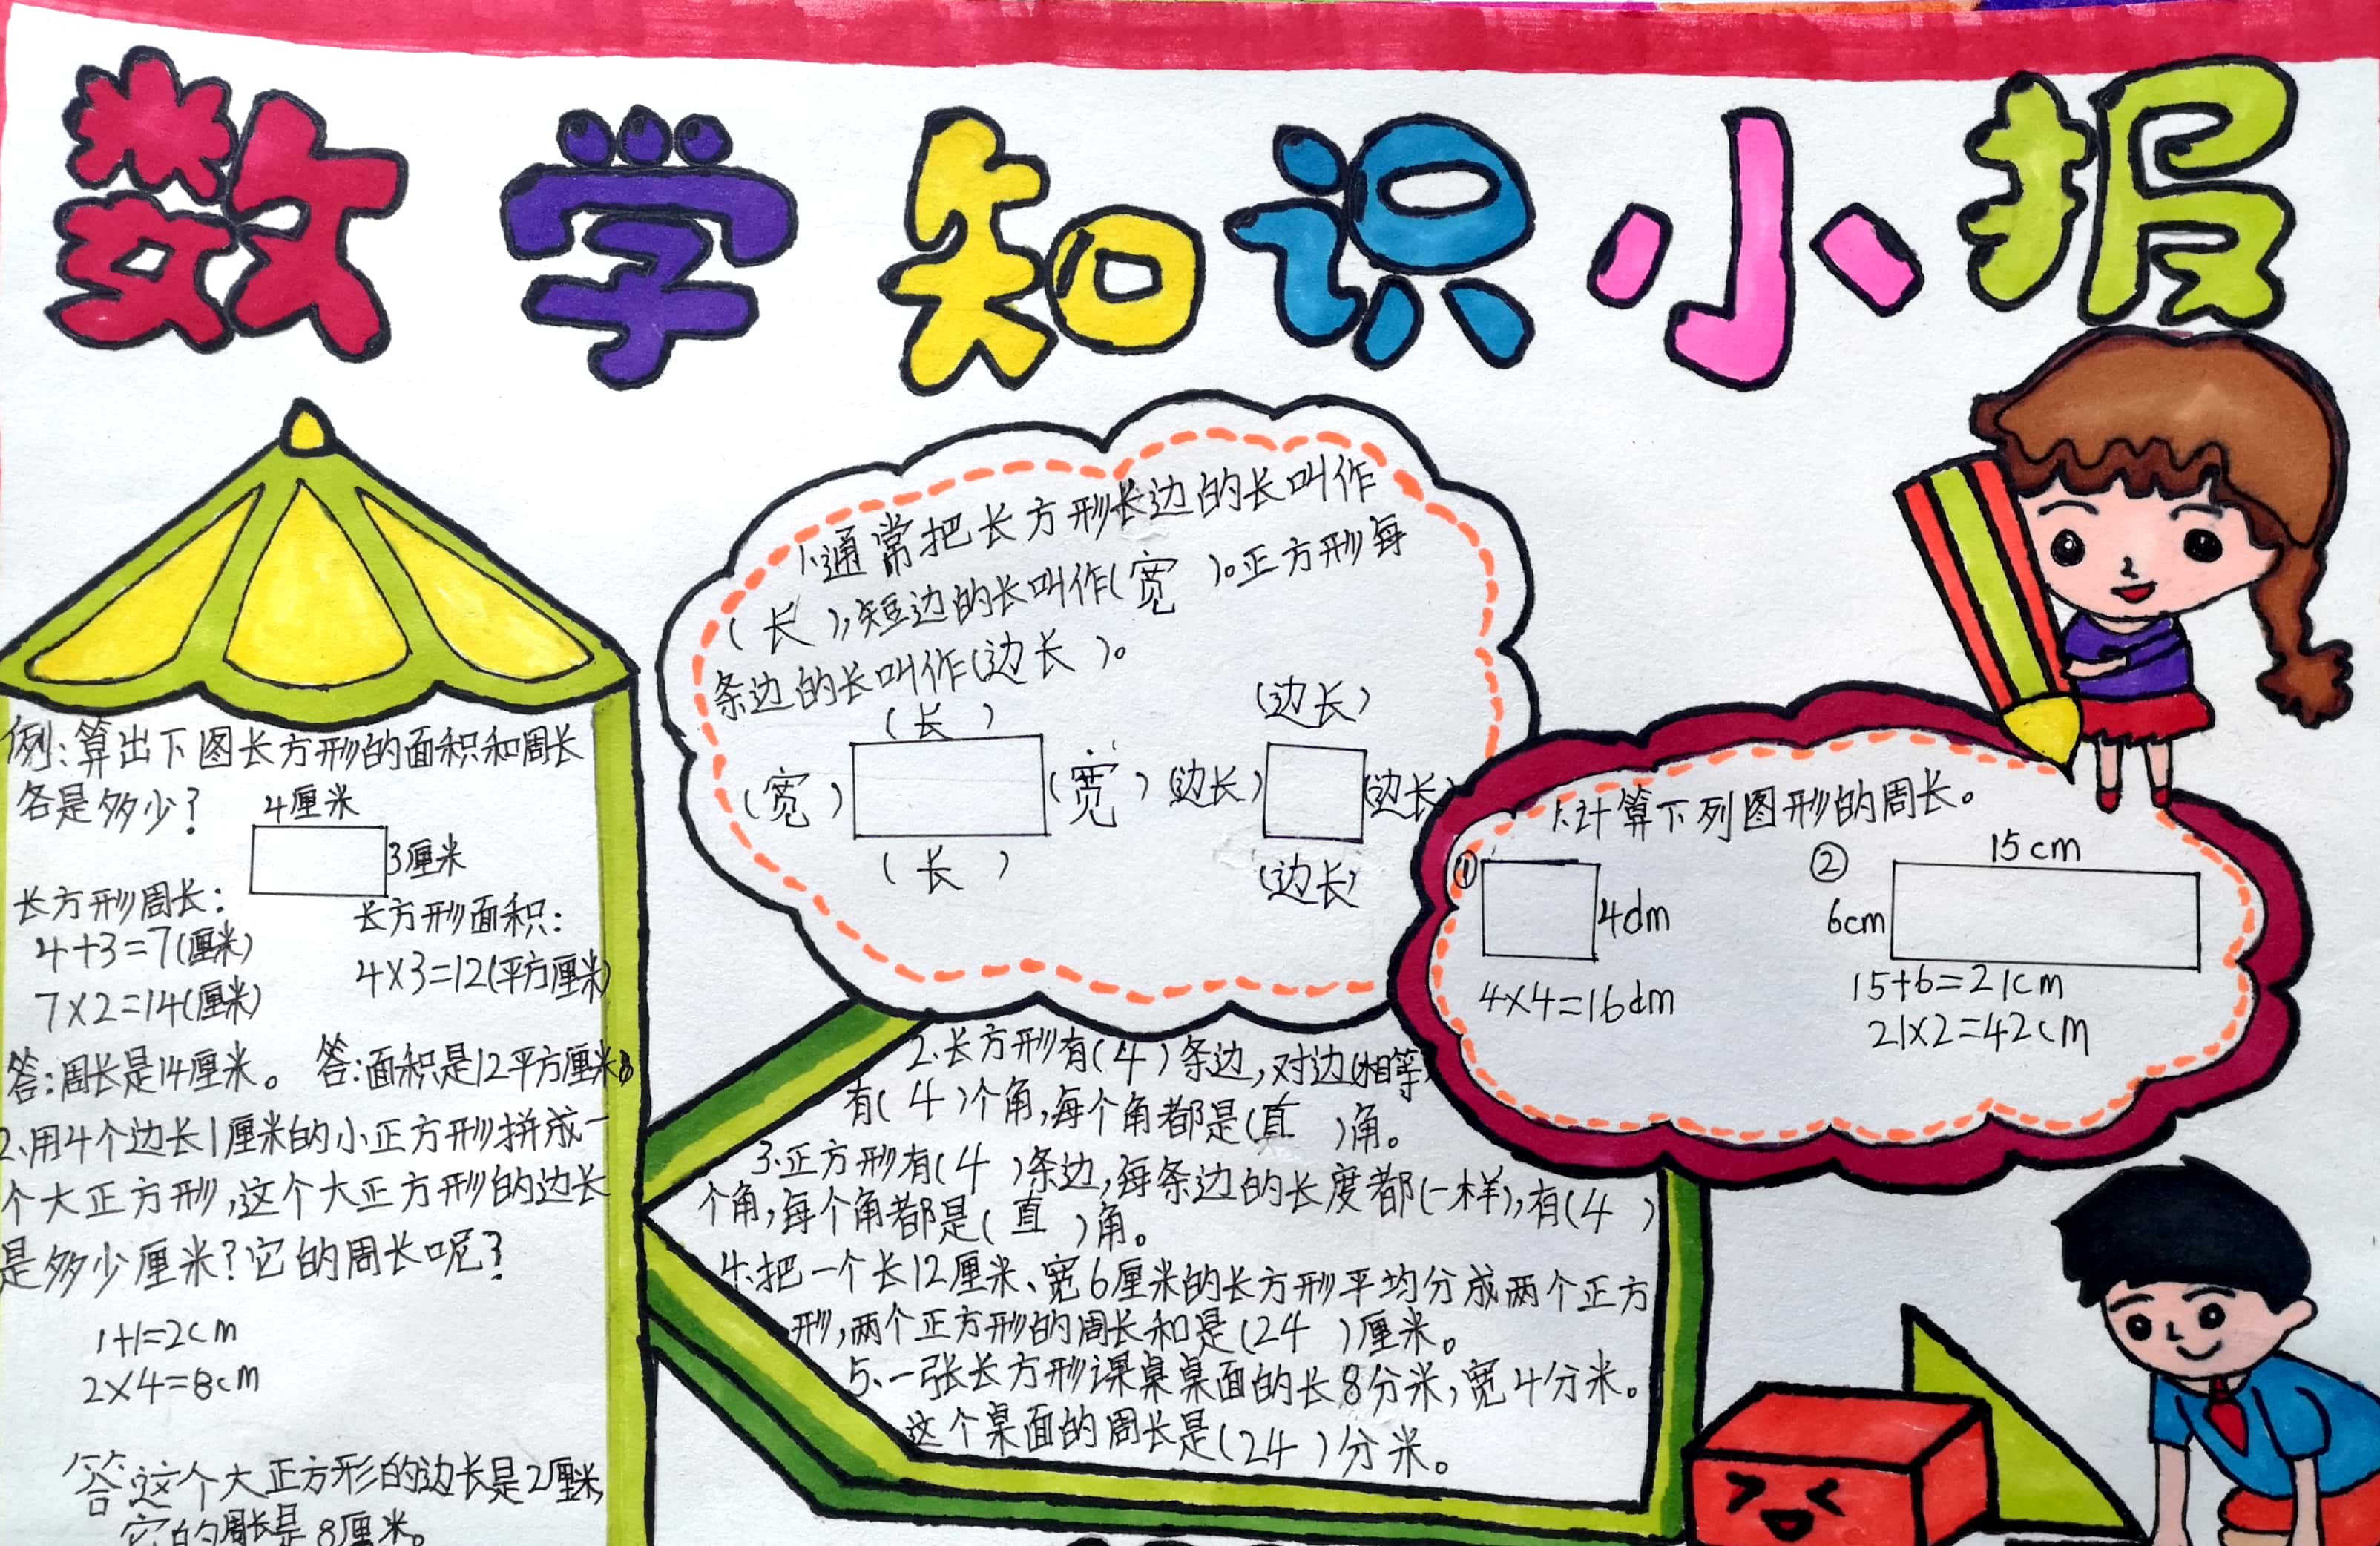 数学知识小报
例:算出下图长方形的面积和周长
各是多少?
4厘米
3厘米
长方形周长:
4+3=7(厘米)
7×2=14(厘米)
答:周长是14厘米。
长方形面积:
4×3=12(平方厘米)
答:面积是12平方厘米。
2、用4个边长1厘米的小正方形拼成一
个大正方形,这个大正方形的边长
是多少厘米?它的周长呢?
1+1=2cm
2×4=8cm
答这个大正方形的边长是2厘米,
它的周长是8厘米。
1.通常把长方形长边的长叫作
(长),短边的长叫作(宽)。正方形每
条边的长叫作(边长)。
(长)
(宽)
(宽)
(长)
(边长)
(边长)
(边长)
(边长)
1.计算下列图形的周长。
①
4dm
4×4=16dm
②
15cm
6cm
15+6=21cm
21×2=42cm
2.长方形有(4)条边,对边(相等)
有(4)个角,每个角都是(直)角。
3.正方形有(4)条边,每条边的长度都(一样),有(4)
个角,每个角都是(直)角。
4.把一个长12厘米、宽6厘米的长方形平均分成两个正方
形,两个正方形的周长和是(24)厘米。
5、一张长方形课桌桌面的长8分米,宽4分米。
这个桌面的周长是(24)分米。